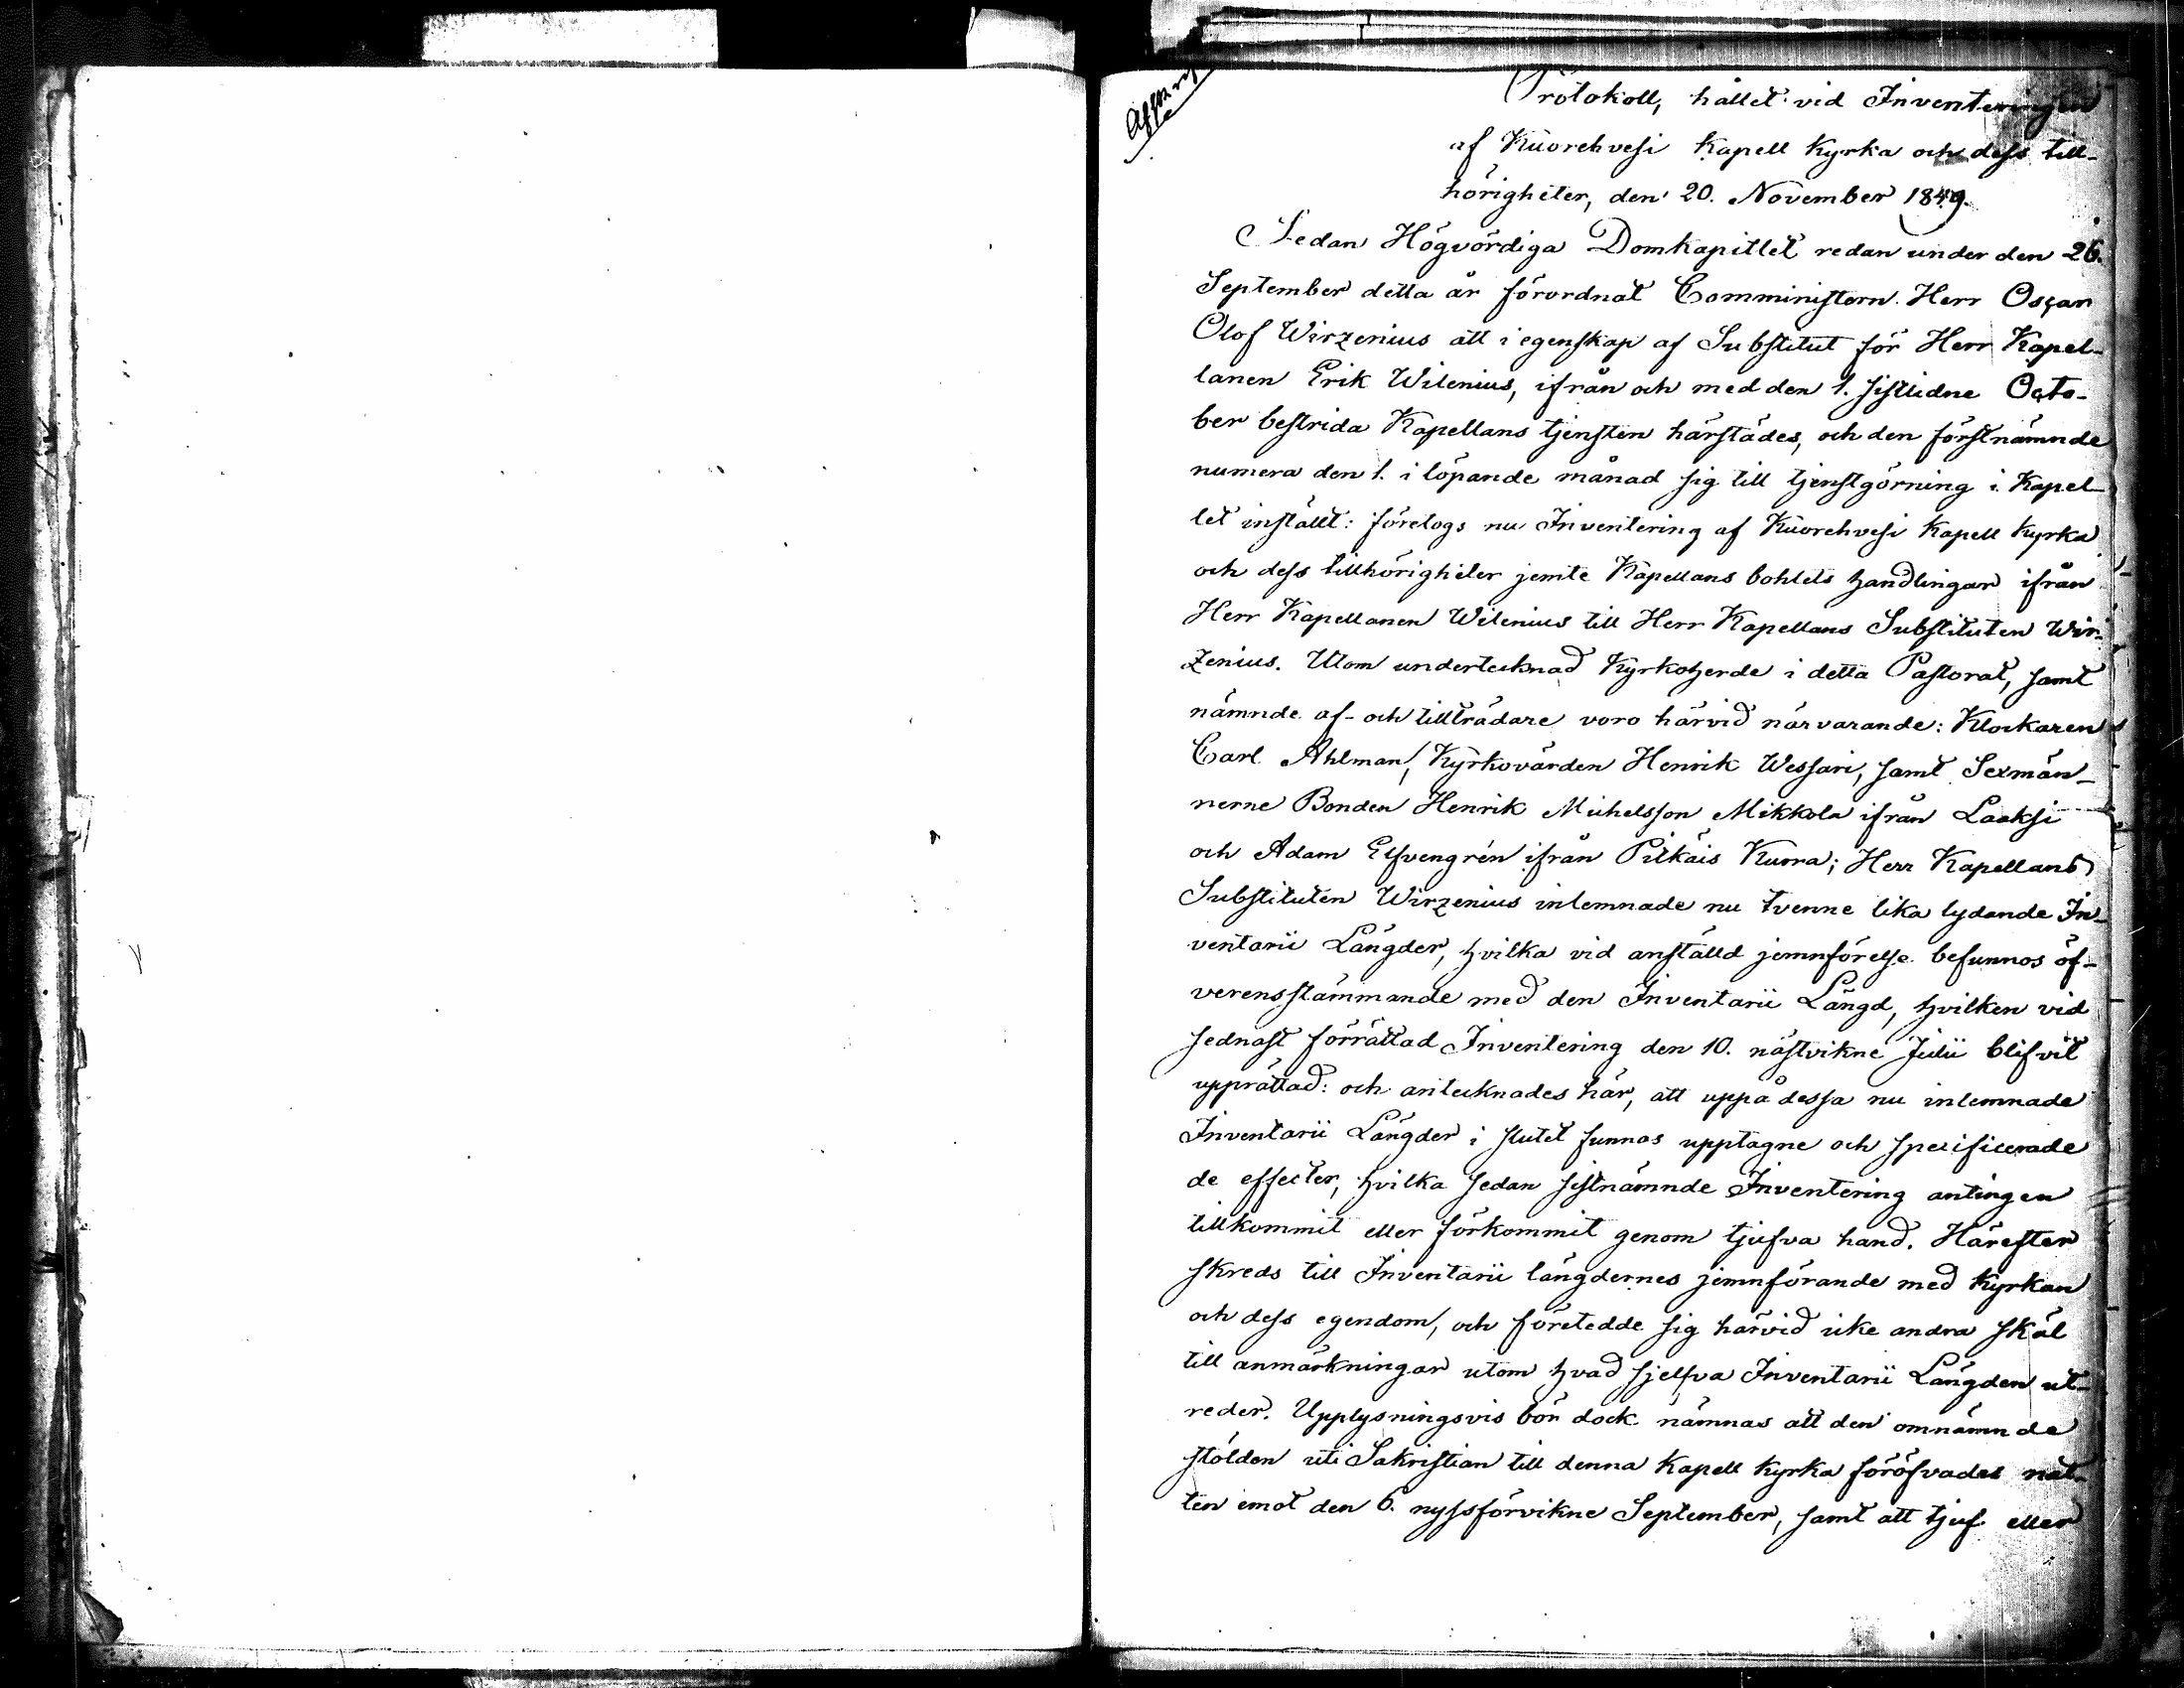 Protokoll, hållet vid Inventeringen
af Kuorehvesi Kapell Kyrka och dess till-
hörigheter, den 20. November 1849.
Sedan Högvördiga Domkapitlet redan under den 26.
September detta år förordnat Comministern Herr Oscar
Olof Wirzenius att i egenskap af Substitut för Herr Kapel-
lanen Erik Wilenius, ifrån och med den 1. sistlidne Octo-
ber bestrida Kapellans tjensten härstädes, och den förstnämnde
numera den 1. i löpande månad sig till tjenstgörning i Kapel-
let inställt: företogs nu Inventering af Kuorehvesi Kapell Kyrka
och dess tillhörigheter jemte Kapellans bohlets handlingar ifrån
Herr Kapellanen Wilenius till Herr Kapellans Substituten Wir-
zenius. Utom undertecknad Kyrkoherde i detta Pastorat, samt
nämnde af- och tillträdare voro härvid närvarande: Klockaren
Carl Ahlman, Kyrkovärden Henrik Wessari, samt Sexmän-
nerne Bonden Henrik Michelsson Mikkola ifrån Laaksi
och Adam Elfvengrén ifrån Pitkäis Kuora; Herr Kapellans
Substituten Wirzenius inlemnade nu tvenne lika lydande In-
ventarii Längder, hvilka vid anställd jemnförelse befunnos öf-
verensstämmande med den Inventarii Längd, hvilken vid
sednast förrättad Inventering den 10. nästvikne Julii blifvit
upprättad: och antecknades här, att uppå dessa nu inlemnade
Inventarii Längder i slutet funnos upptagne och specificerade
de effecter, hvilka sedan sistnämnde Inventering antingen
tillkommit eller förkommit genom tjufva hand. Härefter
skreds till Inventarii längdernes jemnförande med Kyrkan
och dess egendom, och företedde sig härvid icke andra skäl
till anmärkningar utom hvad sjelfva Inventarii Längden ut-
reder. Upplysningsvis bör dock nämnas att den omnämnde
stölden uti Sakristian till denna Kapell Kyrka föröfvades nat-
ten emot den 6. nyssförvikne September, samt att tjuf eller